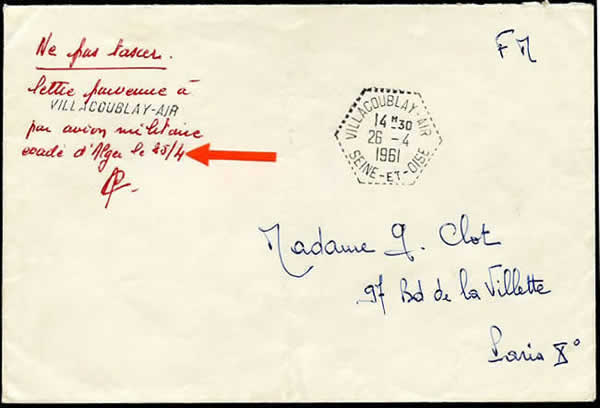 Ne pas taxer.
lettre parvenue à
VILLACOUBLAY-AIR
par avion militaire
evadé d'Alger le 25/4
F M
VILLACOUBLAY-AIR
14 H 30
26 - 4
1961
SEINE-ET-OISE
Madame G. Clot
97 Bd de la Villette
Paris X°